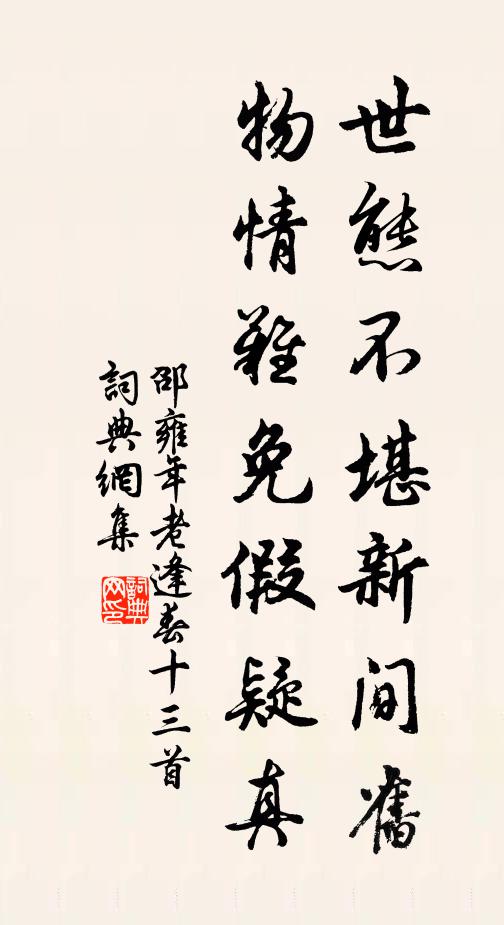 世態不堪新间舊
物情難免假疑真
邵雍年老逢春十三首
詞典網集
詞典网印